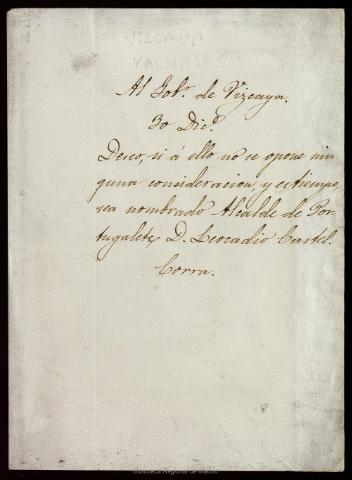 VIZCAYA
VALMASEDA
Al Gobr. de Vizcaya.
30 Dice.
Deseo, si á ello no se opone nin
guna consideracion, y es tiempo,
sea nombrado Alcalde de Por
tugalete, D. Leocadio Castel.
Corra.
Biblioteca Regional de Madrid